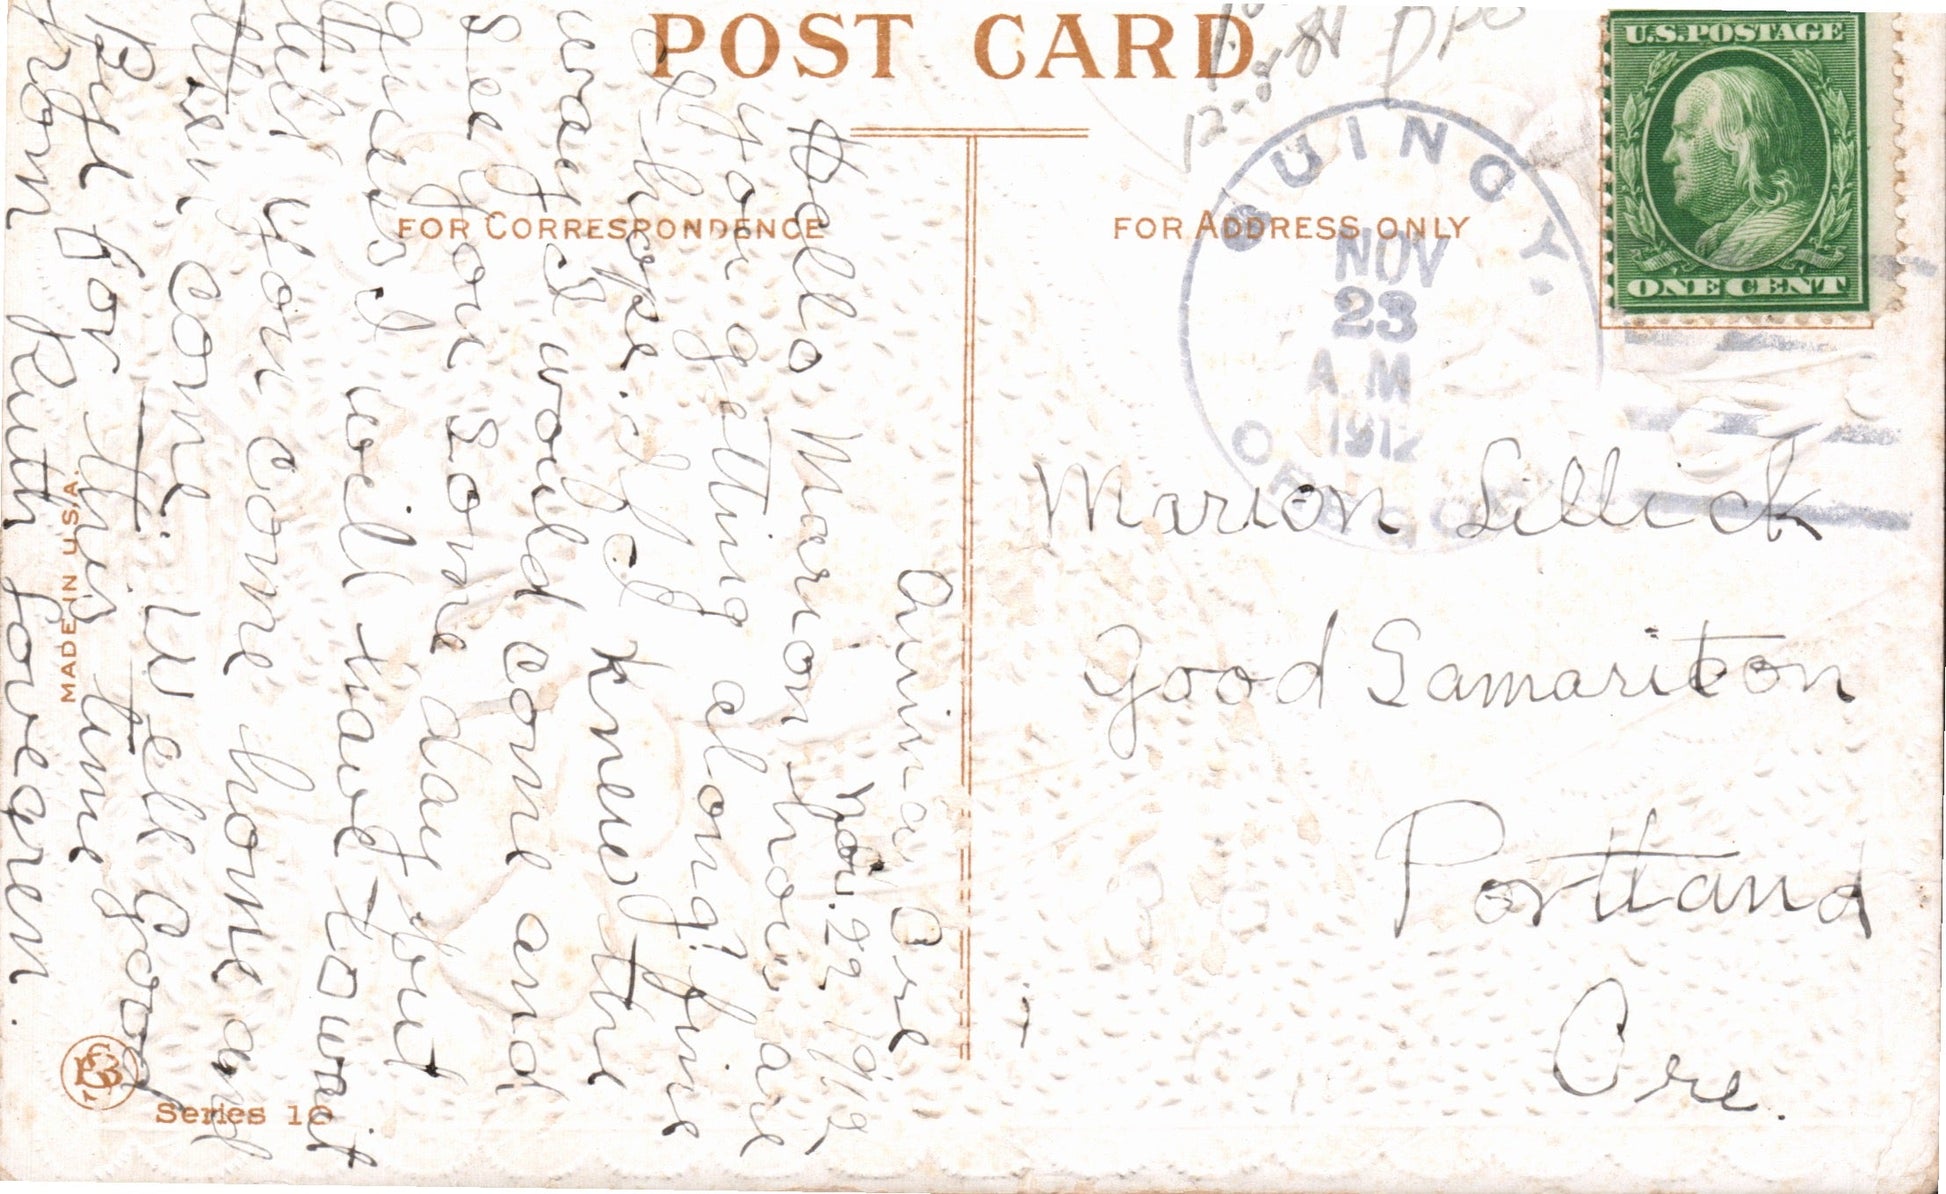 POST CARD
FOR CORRESPONDENCE
Quincy Ore
Nov. 22 1912
Hello Marion how are
you getting along? fine
I hope. If I knew the
way I would come and
see you some day but
guess I will have to wait
till you come home and
then come. Well Good
Bye for this time
from Ruth Lovegren.
MADE IN U.S.A.
Series 16
FOR ADDRESS ONLY
QUINCY.
NOV
23
A M
1912
OREGON
U.S. POSTAGE
ONE CENT
Marion Lillick
Good Samariton
Portland
Ore.